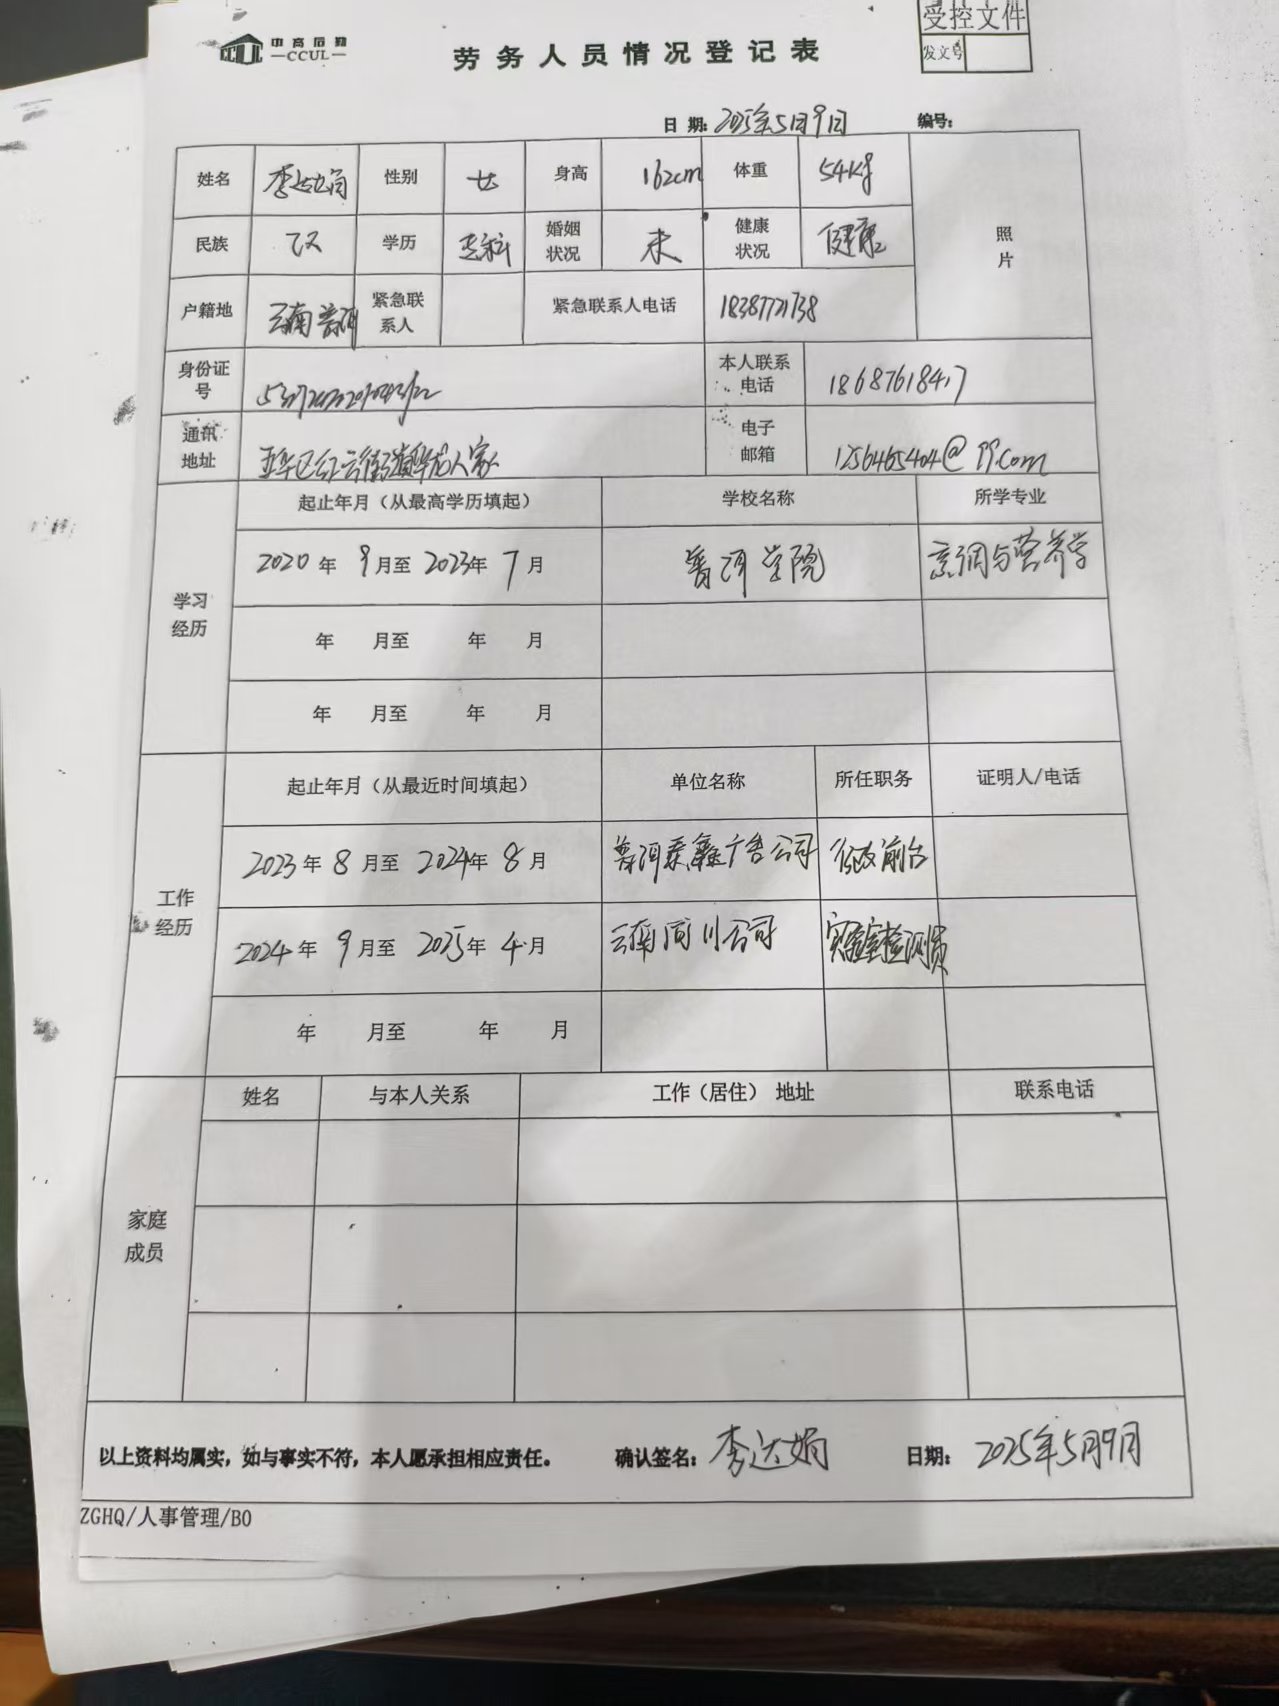 中高后勤
CCUL
受控文件
发文号
劳务人员情况登记表
日期: 2025年5月9日 编号:
姓名 李达娟 性别 女 身高 162cm 体重 54kg
照片
民族 汉 学历 专科 婚姻状况 未 健康状况 健康
户籍地 云南普洱 紧急联系人 紧急联系人电话 18387721738
身份证号 本人联系电话 18687618417
通讯地址 五华区红云街道 人家 电子邮箱 1256465404@qq.com
学习经历
起止年月（从最高学历填起） 学校名称 所学专业
2020年 9月至 2023年 7月 普洱学院 烹调与营养学
年 月至 年 月
年 月至 年 月
工作经历
起止年月（从最近时间填起） 单位名称 所任职务 证明人/电话
2023年 8月至 2024年 8月 普洱 鑫广告公司 行政前台
2024年 9月至 2025年 4月 云南 川公司 实验室检测员
年 月至 年 月
家庭成员
姓名 与本人关系 工作（居住）地址 联系电话
以上资料均属实，如与事实不符，本人愿承担相应责任。 确认签名: 李达娟 日期: 2025年5月9日
ZGHQ/人事管理/B0